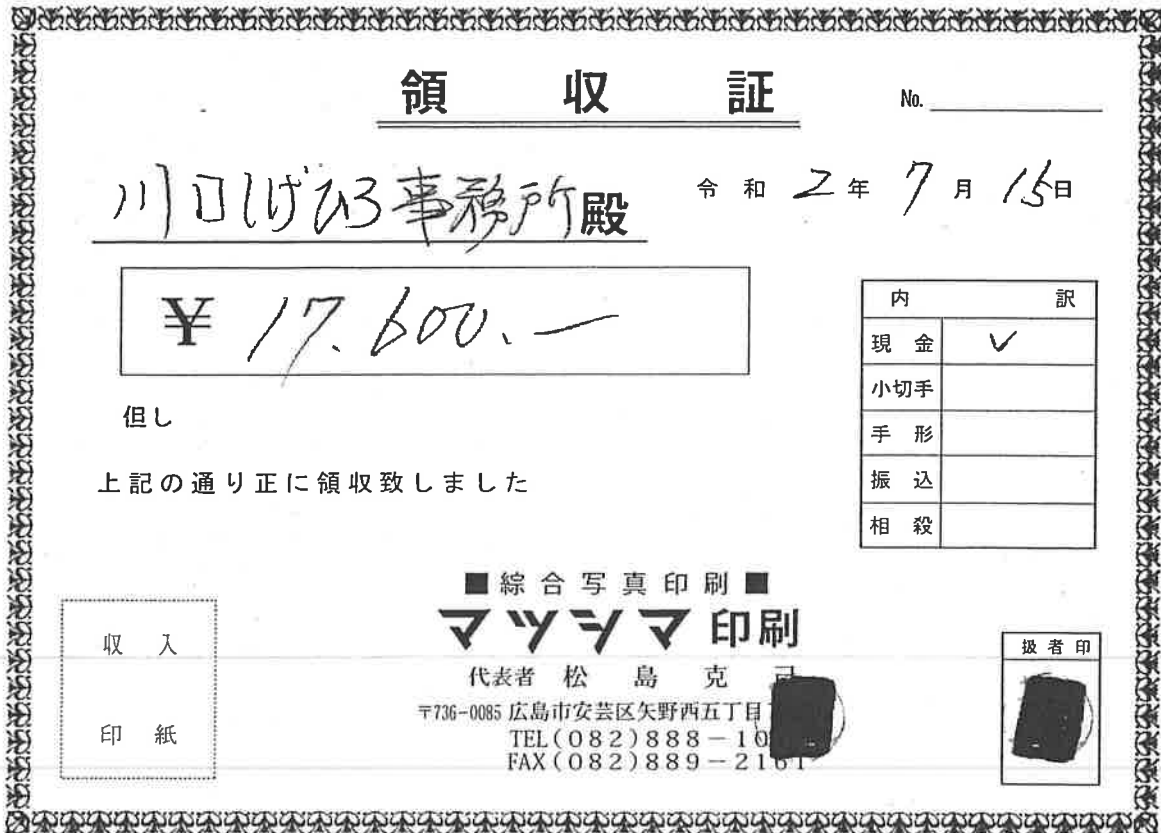 領収証
No.
川口しげひろ事務所殿
令和2年7月15日
¥17.600.—
内訳
現金 ✓
小切手
手形
振込
相殺
但し
上記の通り正に領収致しました
収入
印紙
■綜合写真印刷■
マツシマ印刷
代表者 松島克
〒736-0085 広島市安芸区矢野西五丁目
TEL(082)888-10
FAX(082)889-2161
扱者印